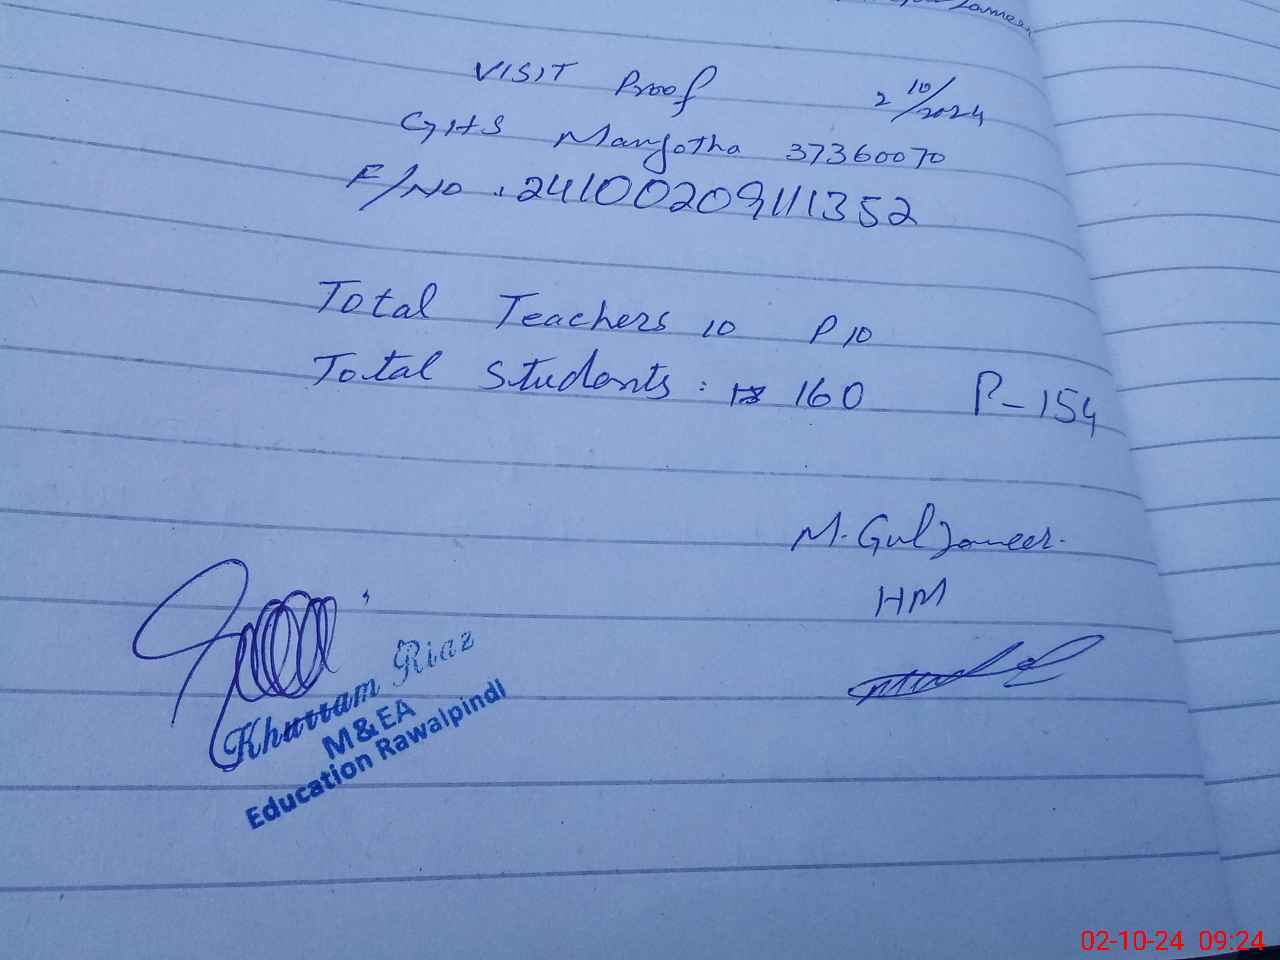 VISIT Proof 2 10/2024
GHS Mangotha 37360070
F/No . 2410020911352
Total Teachers 10 P 10
Total Students : 160 P-154
M. Gul Jameer.
HM
Khurram Riaz
M&EA
Education Rawalpindi
02-10-24 09:24